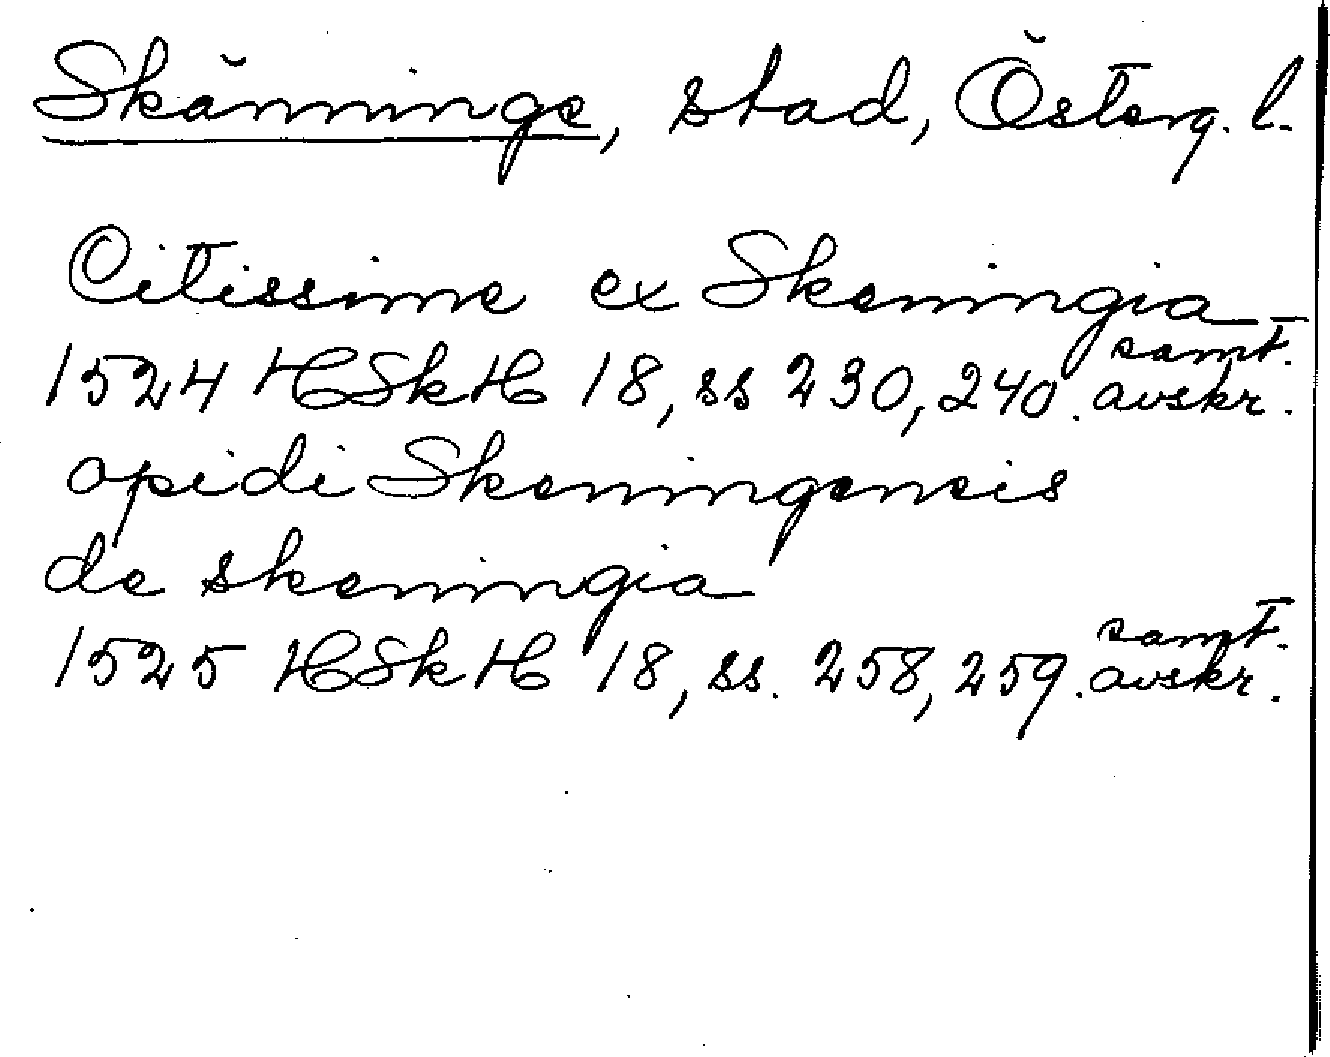 Skänninge, stad, Österg. l.
Citissime ex Skeningia
1524 HSkH 18, ss 230, 240. samt. avskr.
opidi Skeningensis
de skeningia
1525 HSkH 18, ss. 258, 259. samt. avskr.